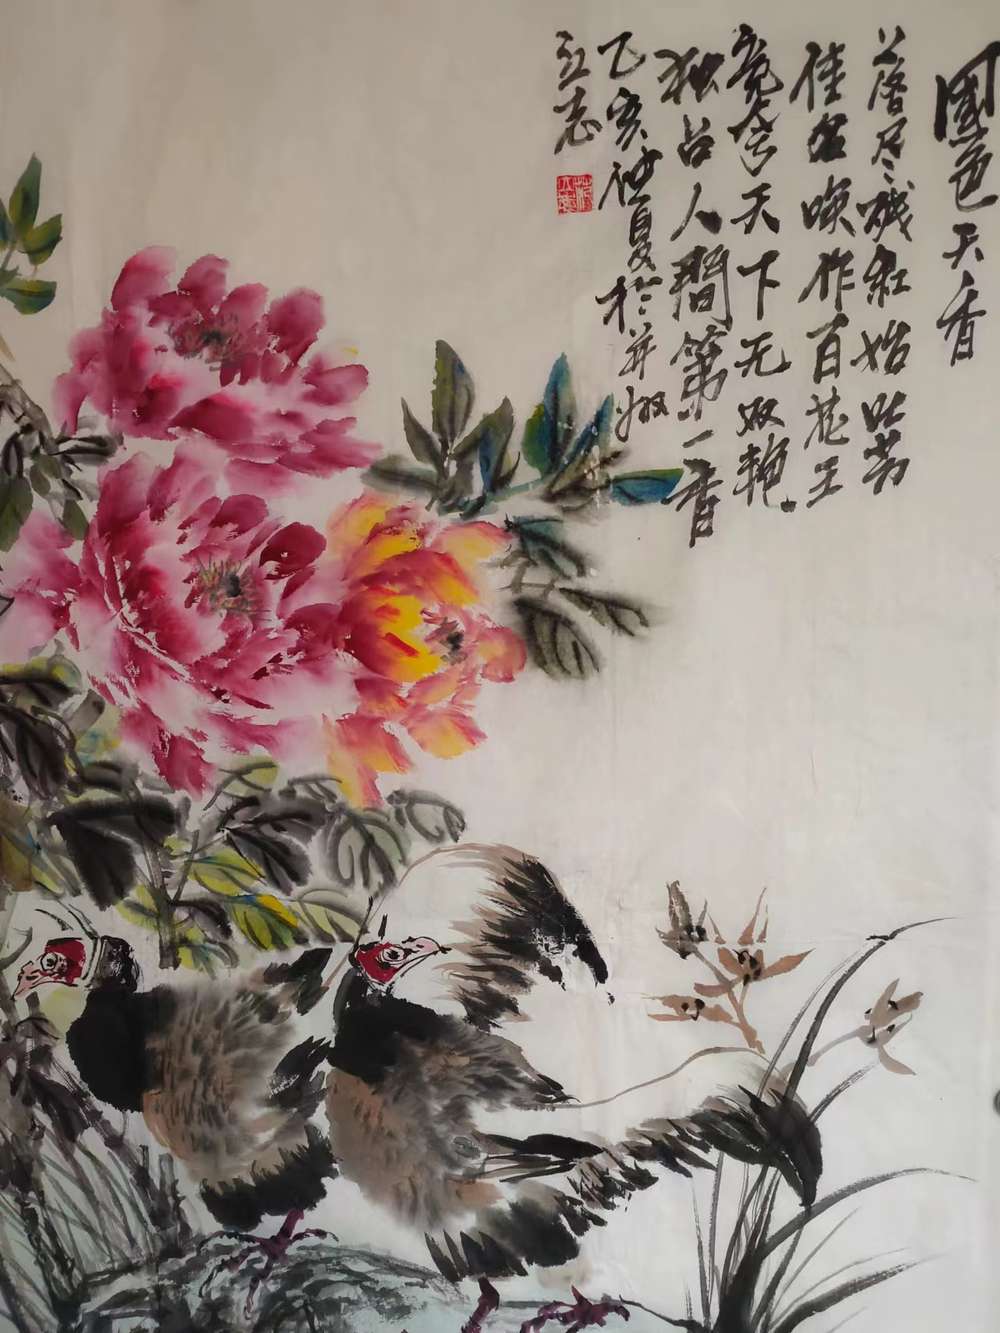 國色天香
落尽残红始吐芳
佳名唤作百花王
竞夸天下无双艳
独占人間第一香
亥仲夏於并州